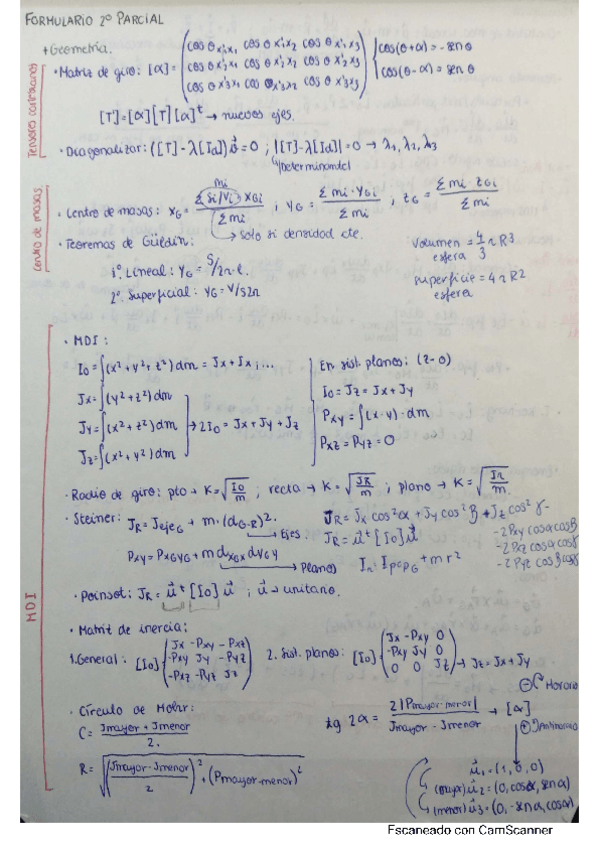 FORMULARIO 2º PARCIAL
+Geometría.
Tensores cartesianos
• Matriz de giro: [α] = (cos θx'1x1 cos θx'1x2 cos θx'1x3
cos θx'2x1 cos θx'2x2 cos θx'2x3
cos θx'3x1 cos θx'3x2 cos θx'3x3)
cos(θ+α) = -senθ
cos(θ-α) = senθ
[T] = [α][T][α]ᵗ → nuevos ejes.
• Diagonalizar: ([T] - λ[Id]) u⃗ = 0 ; |[T] - λ[Id]| = 0 → λ1, λ2, λ3
↳Determinante
Centro de masas
mi
• Centro de masas: xG = Σ Si/Vi · xGi / Σ mi ; yG = Σ mi · yGi / Σ mi ; zG = Σ mi zGi / Σ mi
→ solo si densidad cte.
• Teoremas de Güldin:
1º. Lineal: yG = S/2π·L
2º. Superficial: yG = V/S2π
Volumen esfera = 4/3 π R3
superficie esfera = 4πR2
MDI
• MDI:
Io = ∫(x² + y² + z²) dm = Jx + Jx1...
Jx = ∫(y² + z²) dm
Jy = ∫(x² + z²) dm → 2Io = Jx + Jy + Jz
Jz = ∫(x² + y²) dm
En sist. planos: (z=0)
Io = Jz = Jx + Jy
Pxy = ∫(x·y)·dm
Pxz = Pyz = 0
• Radio de giro: pto → K = √(Io/m) ; recta → K = √(JR/m) ; plano → K = √(Jπ/m)
• Steiner: JR = JejeG + m·(dG-R)².
→ Ejes.
JR = Jx cos²α + Jy cos²β + Jz cos²γ -
- 2Pxy cosα cosβ
- 2Pxz cosα cosγ
- 2Pyz cosβ cosγ
JR = u⃗ᵗ [Io] u⃗
Pxy = PxGyG + m dxGx dyGy
→ Planos
Iπ = IpcpG + m r²
• Poinsot: JR = u⃗ᵗ [Io] u⃗ ; u⃗ → unitario.
• Matriz de inercia:
1. General: [Io] (Jx -Pxy -Pxz
-Pxy Jy -Pyz
-Pxz -Pyz Jz)
2. Sist. planos: [Io] (Jx -Pxy 0
-Pxy Jy 0
0 0 Jz) → Jz = Jx + Jy
• Círculo de Mohr:
C = Jmayor + Jmenor / 2.
R = √((Jmayor - Jmenor / 2)² + (Pmayor-menor)²
tg 2α = 2|Pmayor-menor| / Jmayor - Jmenor → [α]
⊖ Horario
⊕ Antihorario
u⃗1 = (1, 0, 0)
(mayor) u⃗2 = (0, cosα, senα)
(menor) u⃗3 = (0, -senα, cosα)
Escaneado con CamScanner